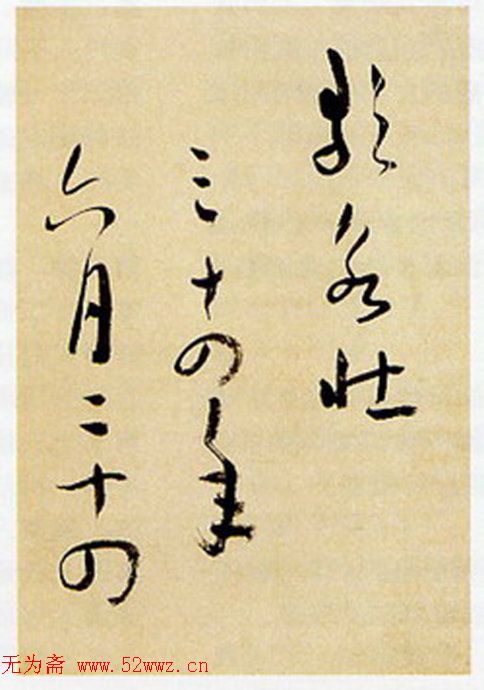 壮
三十四年
六月二十四
无为斋 www.52wwz.cn